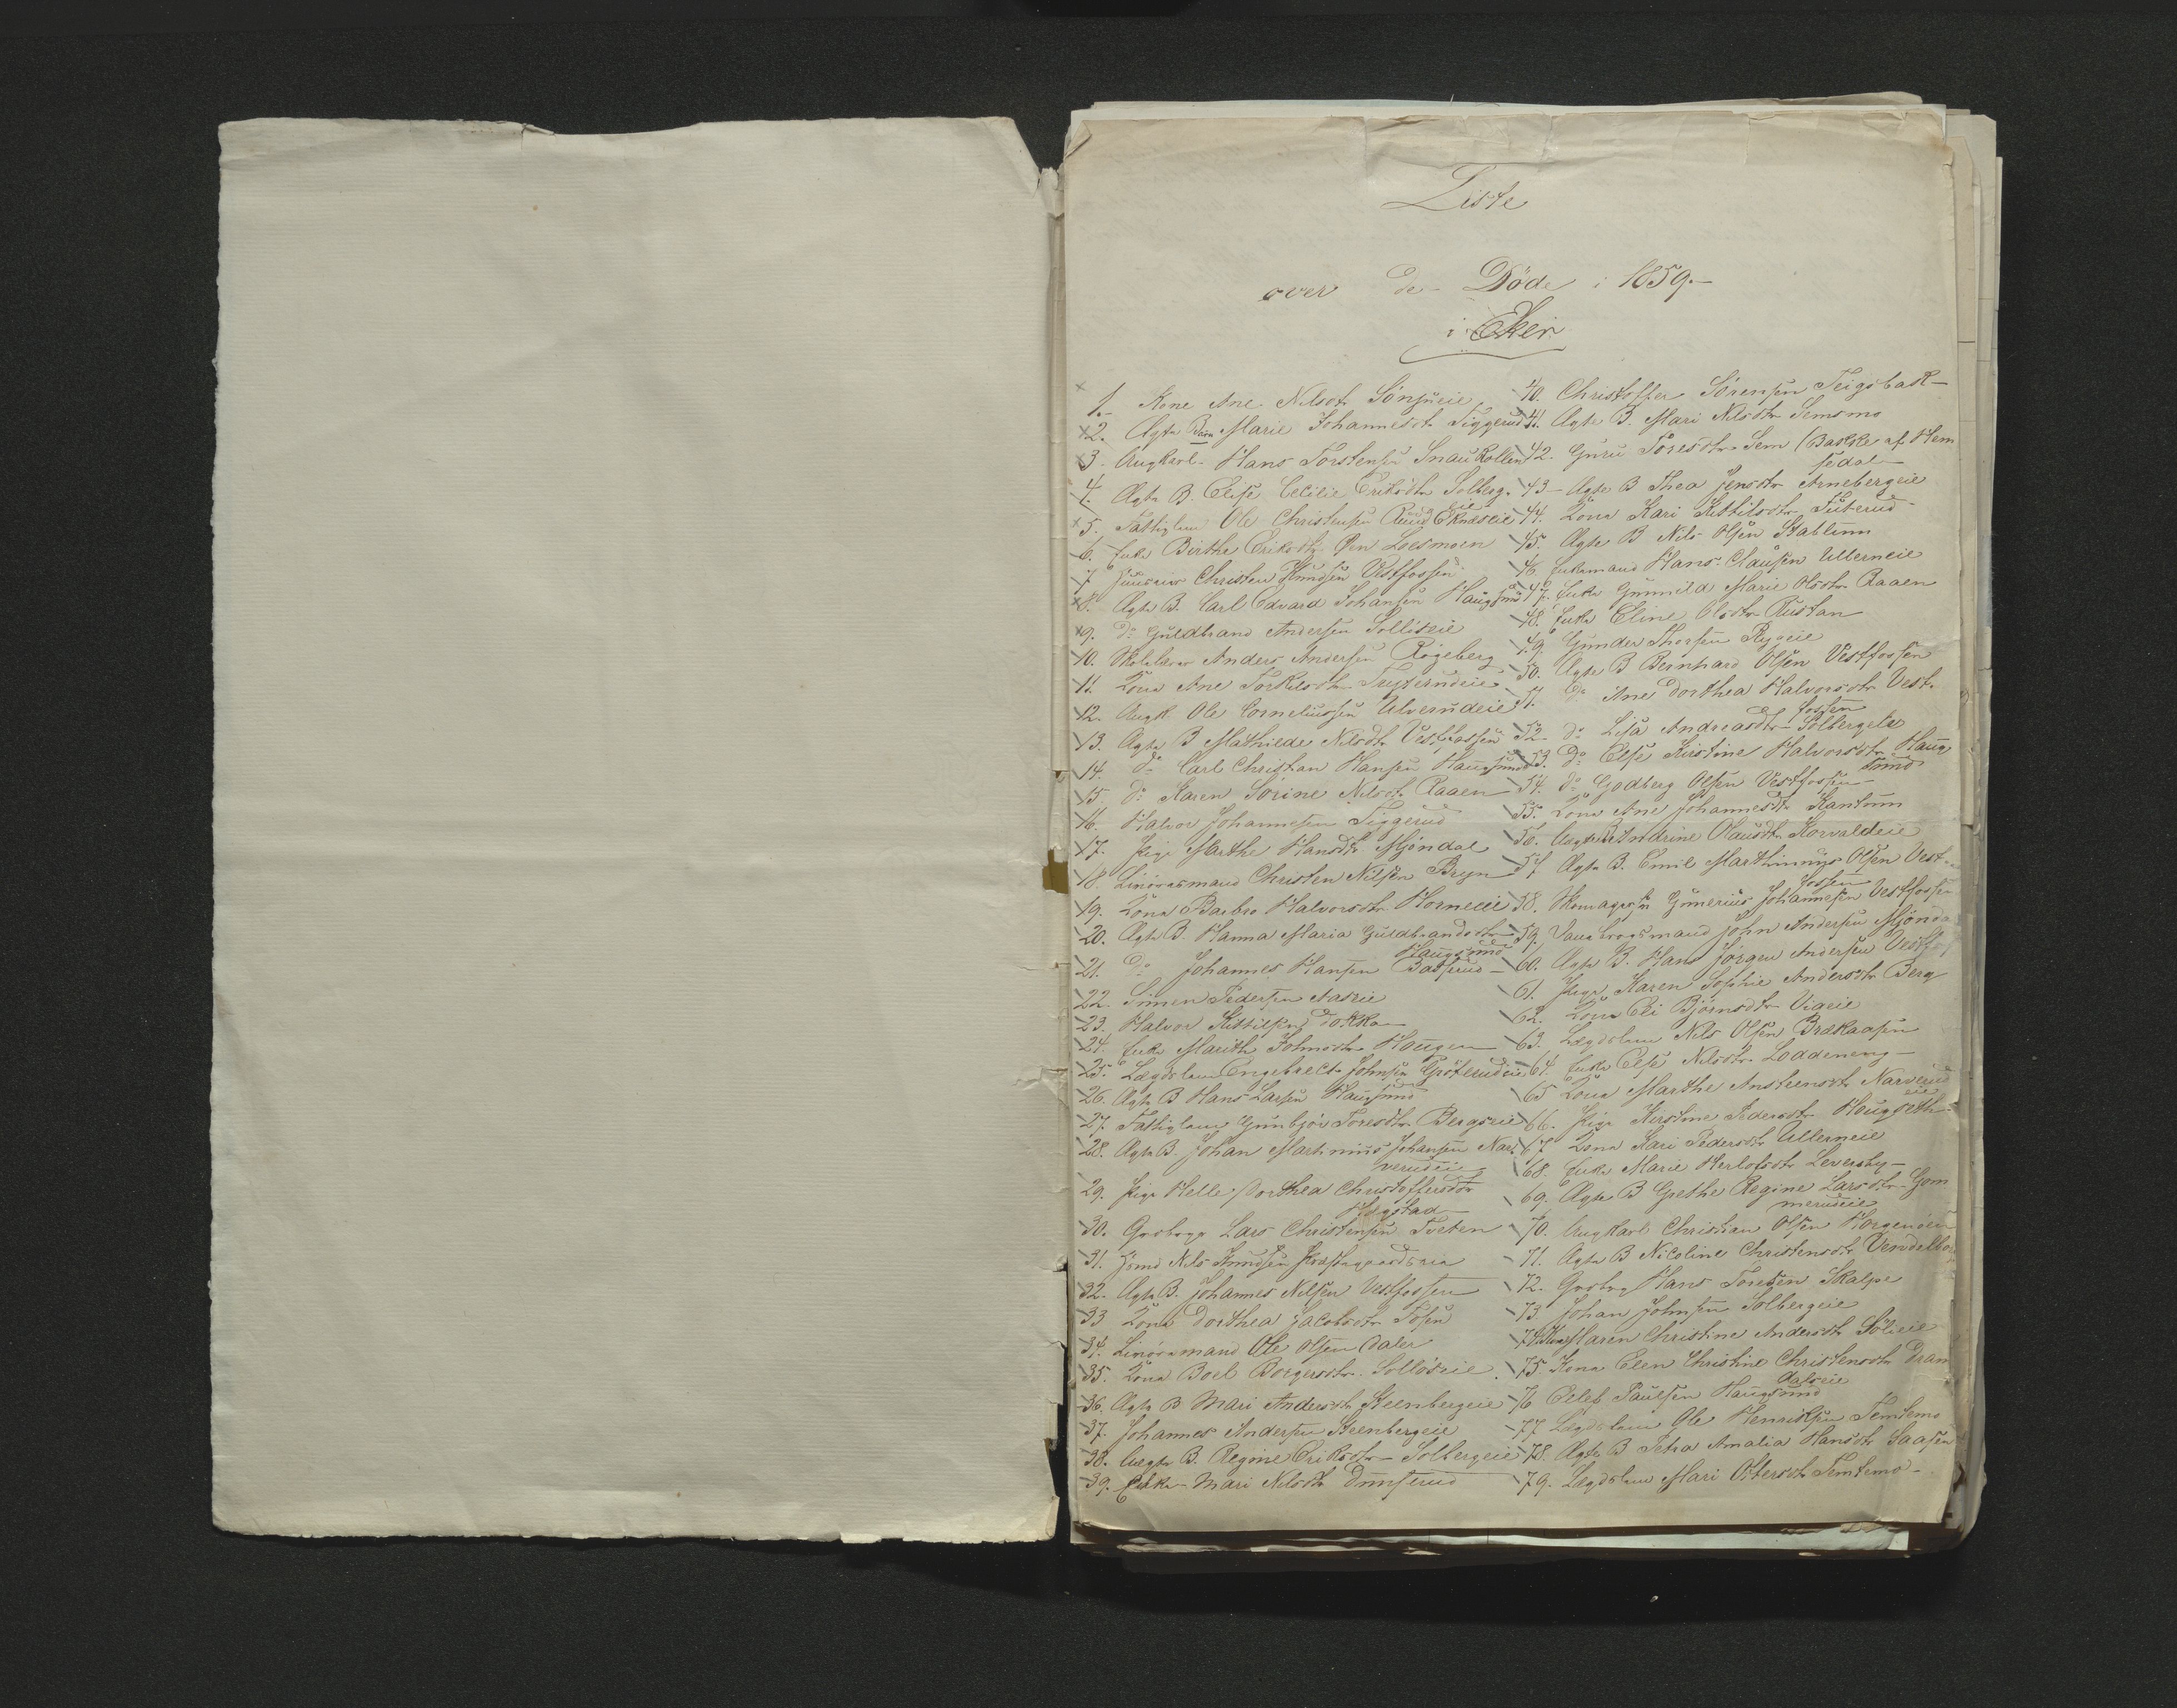 Liste
over de Döde i 1859.-
i Eker
1. Kone Ane Nilsdt. Sönjueie
2. Ægte Barn Marie Johannesdt. Tiggerud
3. Ungkarl Hans Torstensen Snaukollen
4. Ægte B. Elise Cecilie Eriksdtr Solberg-
eie
5. Fattiglem Ole Christensen Ruud
6. Enke Birthe Eriksdtr Øen Loesmoen
7. Huuseier Christen Knudsen Vestfossen
8. Ægte B. Carl Edvard Johansen Haugsund
9. Do Guldbrand Andersen Solliseie
10. Skolelærer Anders Andersen Rögeberg
11. Kona Ane Torkilsdtr
12. Ungk. Ole Corneliussen Ulverudeie
13. Ægte B Mathilde Nilsdtr Vestfossen
14. Do Carl Christian Hansen Haugsund
15. Do Karen Sorine Nilsdt. Raaen
16. Halvor Johannesen Tiggerud
17. Pige Marthe Hansdtr Mjöndal
18. Livöresmand Christen Nilsen Bryn
19. Kona Barbro Halvorsdtr Horneeie
20. Ægte B. Hanna Maria Guldbrandsdtr
Haugsund
21. Do Johannes Hansen Basserud
22. Simen Pedersen Aaseie
23. Halvor Kittilsen Dokka
24. Enke Marith Johnsdtr Hougen
25. Lægdslem Engebrecht Johnsen Gröterudeie
26. Ægte B Hans Larsen Haugsund
27. Fattiglem Gunbjör Toresdtr Bergseie
28. Ægte B. Johan Martinius Johansen Nar-
verudeie
29. Pige Helle Dorthea Christoffersdtr
Hægstad
30. Grdbrgr Lars Christensen Tveten
31. Hsmd Nils Knudsen Præstegaardseie
32. Ægte B. Johannes Nilsen Vestfossen
33 Kona Dorthea Jacobsdtr Tosen
34. Livöresmand Ole Olsen Daler
35. Kona Boel Borgersdtr. Solloseie
36. Ægte B Mari Andersdtr Steenbergeie
37. Johannes Andersen Steenbergeie
38. Uægte B. Regine Eriksdtr Solbergeie
39. Enke Mari Nilsdtr Dunserud
40. Christoffer Sörensen Teigsbak
41. Ægte B. Mari Nilsdtr Semsmo
42. Guru Toresdtr Sem (Bakke af Hem
sedal
43 Ægte B Thea Jensdtr Arnebergeie
44. Kona Kari Kittilsdtr Futerud
45. Ægte B Nils Olsen Stablum
46. Enkemand Hans Clausen Ullerneie
47. Enke Gunnild Marie Olsdtr Raaen
48. Enke Eline Olsdtr Rustan
49. Gunder Thorsen Rygeie
50. Ægte B Bernhard Olsen Vestfossen
51. Do Ane Dorthea Halvorsdtr Vest-
fossen
52. Do Lisa Andreasdtr Solbergelv
53. Do Else Kirstine Halvorsdtr Haug
sund
54. Do Godberg Olsen Vestfossen
55. Kona Ane Johannesdtr Kantum
56. Uægte B Andrine Olausdtr Korvaldeie
57 Ægte B. Emil Marthinius Olsen Vest-
fossen
58. Skomager Gomerius Johannesen Vestfossen
59. Vaabrugsmand John Andersen Mjönda
60. Ægte B. Hans Jörgen Andersen Vestfos
61. Pige Karen Sophie Andersdtr Berg
62. Kona Eli Björnsdtr Vigeie
63. Lægdslem Nils Olsen Brækaasen
64. Enke Else Nilsdtr Loddeneng
65 Kona Marthe Anstensdt Narverud
eie
66. Pige Kirstine Pedersdtr Hougseth
67 Kona Kari Pedersdtr Ullerneie
68. Enke Marie Herlofsdtr Leversby
69. Ægte B Grethe Regine Larsdtr Gom
merudeie
70. Ungkarl Christian Olsen Horgenseie
71. Ægte B Nicoline Christensdtr Vendelbor
72. Grdbrg Hans Toresen Skalpe
73 Johan Johnsen Solbergeie
74. Kona Maren Christine Andersdt Sölieie
75. Kona Elen Christine Christensdtr Dram
dalseie
76 Ellef Paulsen Haugsund
77 Lægdslem Ole Henriksen Temtemo
78. Ægte B Petra Amalia Hansdtr Saasen
79. Lægdslem Mari Ostersdt Temtemo